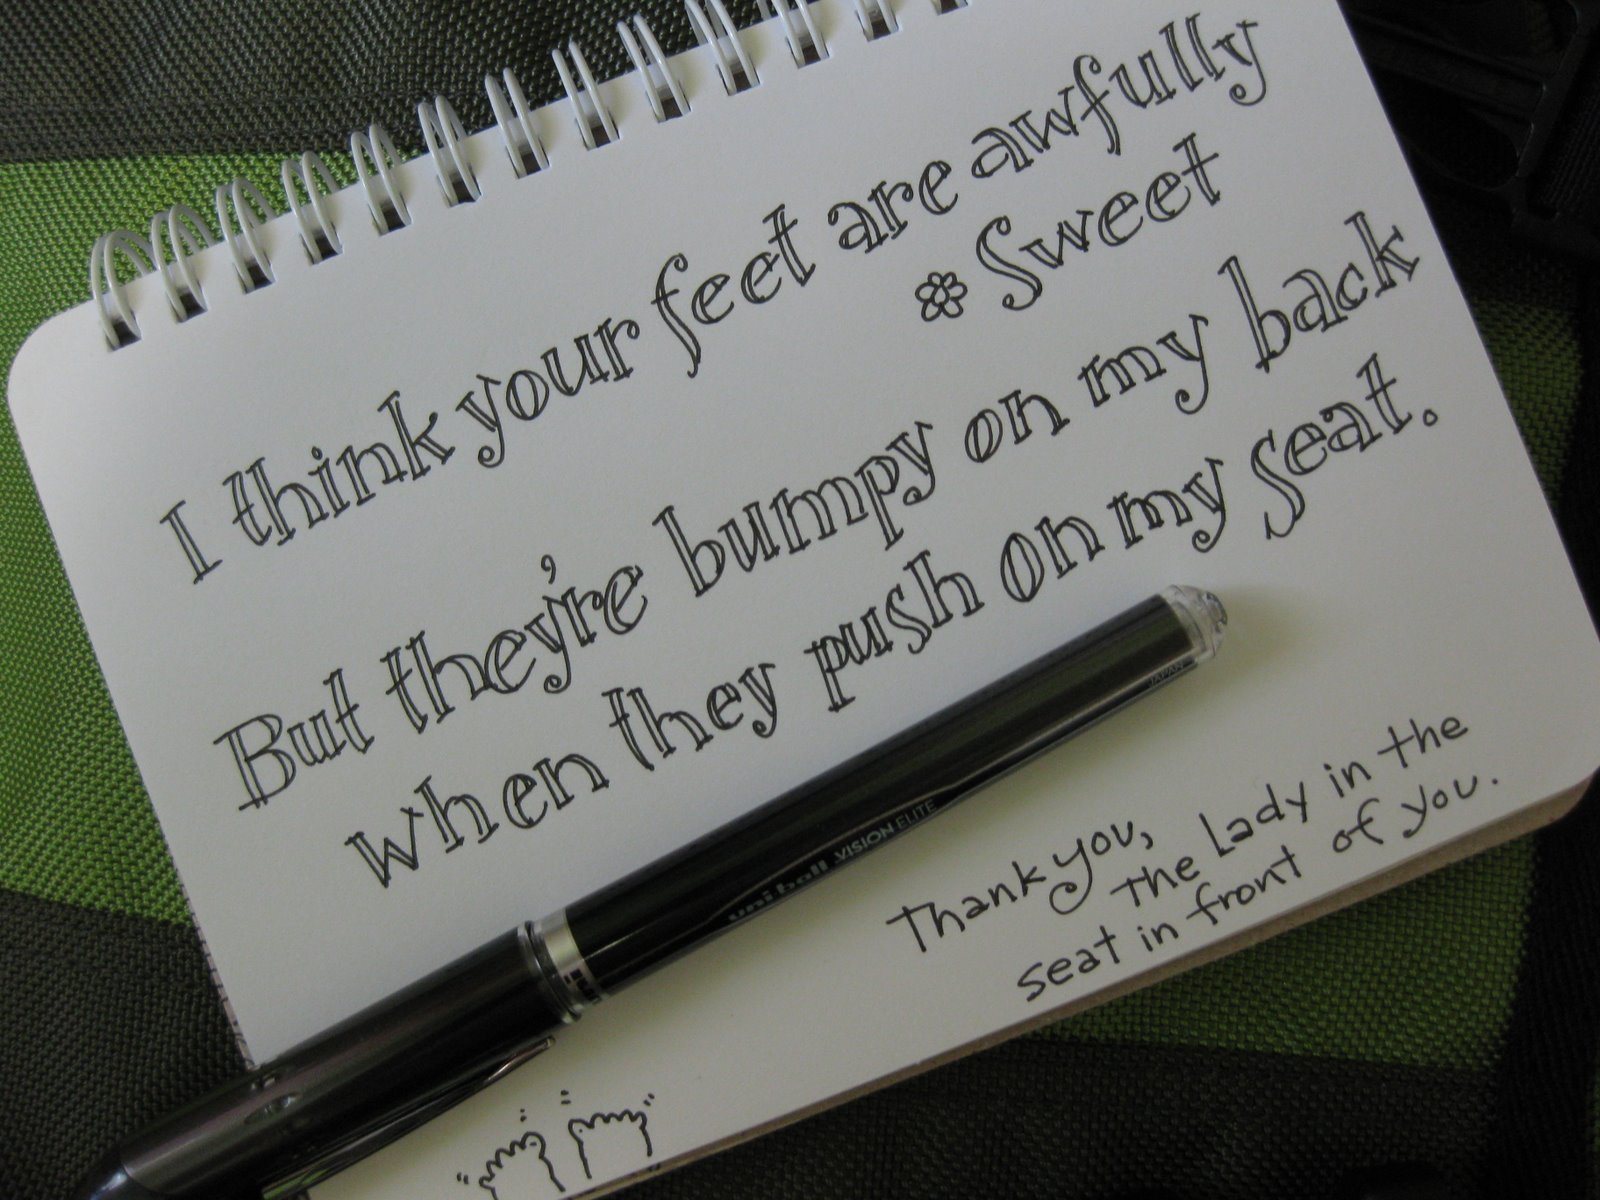 I think your feet are awfully
Sweet
But they're bumpy on my back
when they push on my seat.
uni-ball VISION ELITE
JAPAN
Thank you,
The Lady in the
seat in front of you.